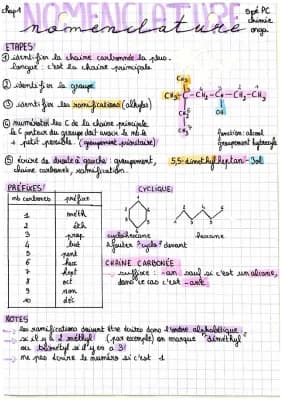 chap 1
NOMENCLATURE
nomenclature
Spé PC
chimie
orga
ETAPES:
① identifier la chaîne carbonée la plus
longue : c'est la chaîne principale
② identifier le groupe
③ identifier les ramifications (alkyles)
④ numéroter les C de la chaîne principale
le C porteur du groupe doit avoir le nb le
+ petit possible. (groupement prioritaire)
⑤ écrire de droite à gauche : groupement,
chaîne carbonée, ramification.
CH₃
CH₃ - C - CH₂ - C - CH₂ - CH₃
CH₃
OH
fonction : alcool
groupement hydroxyle
5,5-diméthylheptan-3ol
PRÉFIXES:
nb carbones
préfixe
1 méth
2 éth
3 prop
4 but
5 pent
6 hex
7 hept
8 oct
9 non
10 déc
CYCLIQUE:
cyclohexane
hexane
ajouter "cyclo" devant
CHAÎNE CARBONÉE
suffixe : -an sauf si c'est un alcane,
dans ce cas c'est -ane
NOTES
les ramifications doivent être écrites dans l'ordre alphabétique
si il y a 2 méthyl (par exemple) on marque "diméthyl"
ou triméthyl si il y en a 3
ne pas écrire le numéro si c'est 1